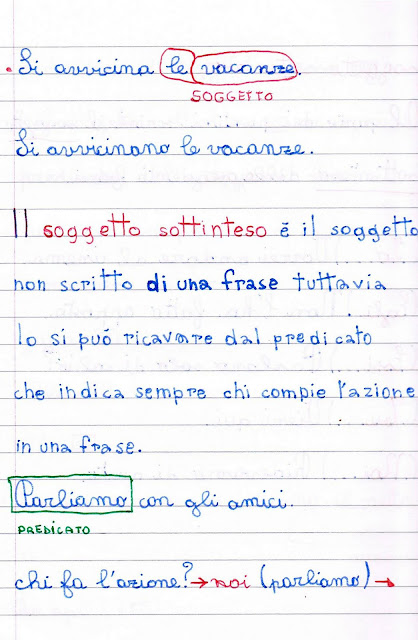 • Si avvicina le vacanze.
SOGGETTO
Si avvicinano le vacanze.
Il soggetto sottinteso è il soggetto
non scritto di una frase tuttavia
lo si può ricavare dal predicato
che indica sempre chi compie l'azione
in una frase.
Parliamo con gli amici.
PREDICATO
chi fa l'azione? → noi (parliamo) →